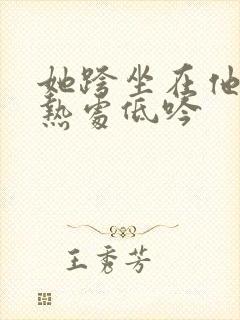 她跨坐在他
熱處低吟
王秀芳